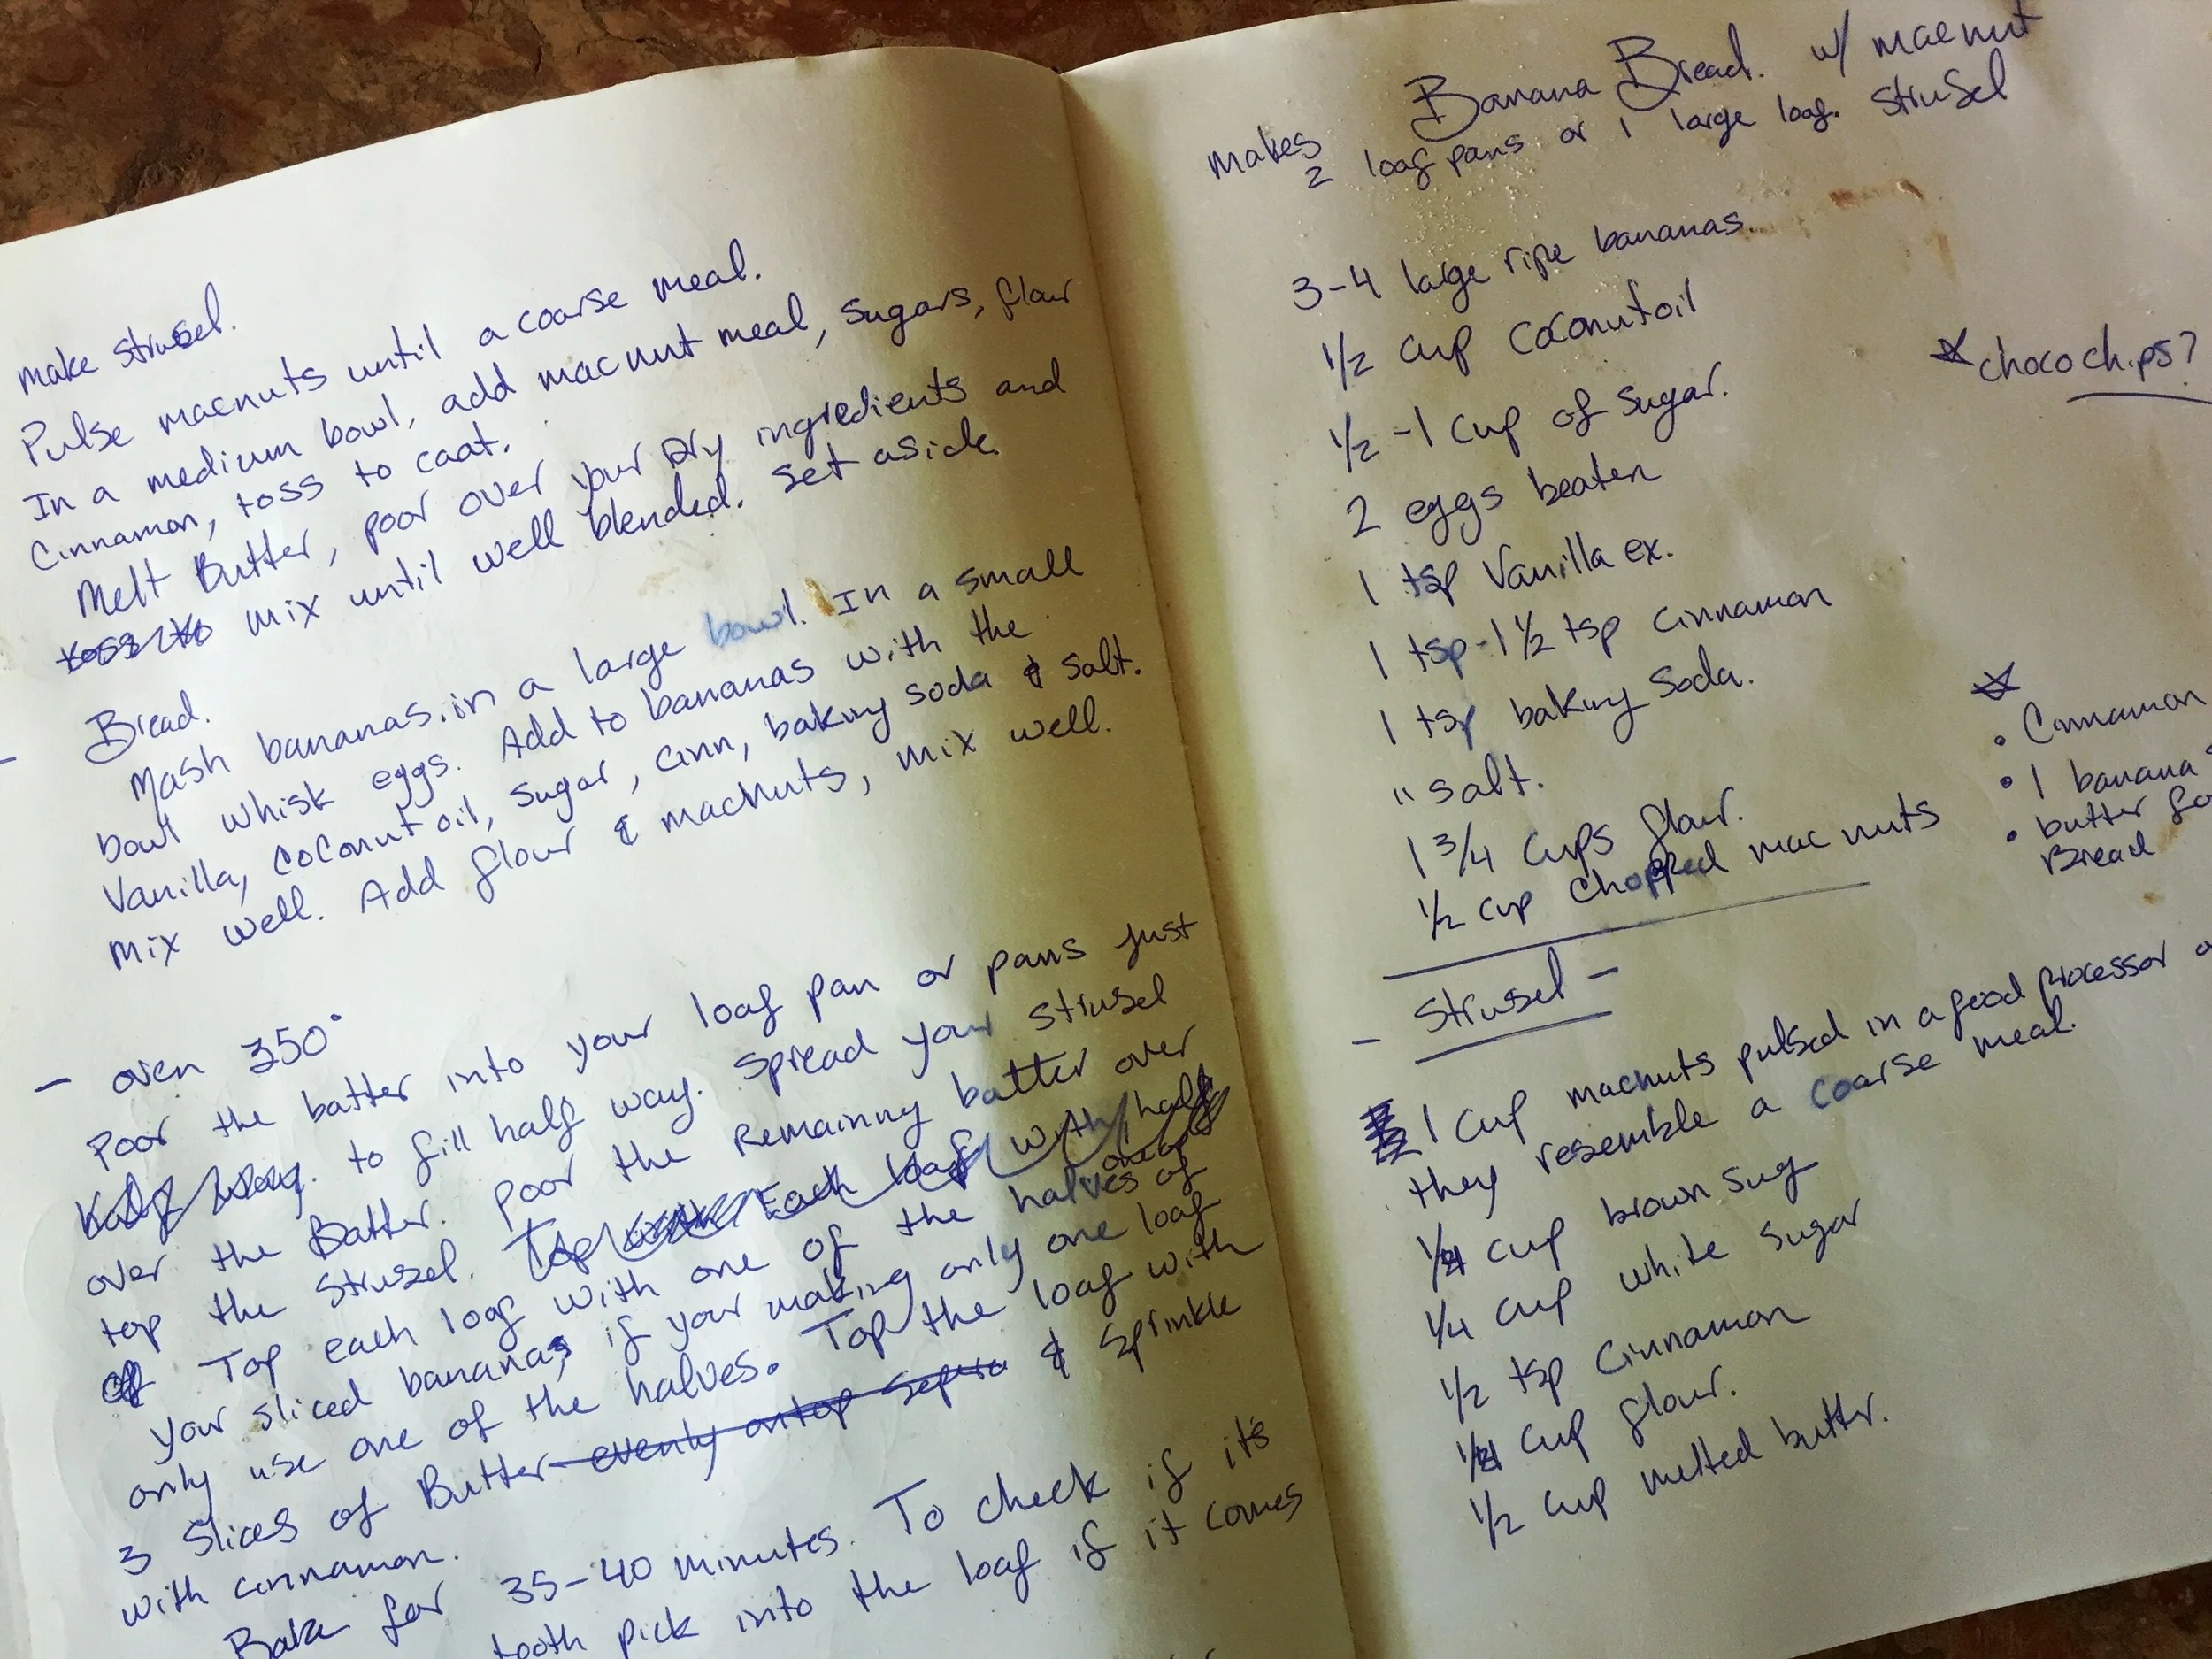 make strusel.
Pulse macnuts until a coarse meal.
In a medium bowl, add macnut meal, sugars, flour
Cinnamon, toss to coat.
Melt Butter, poor over your Dry ingredients and
toss to mix until well blended. Set aside.
- Bread.
Mash bananas. in a large bowl. In a small
bowl whisk eggs. Add to bananas with the
Vanilla, coconut oil, sugar, cinn, baking soda & salt.
Mix well. Add flour & macnuts, mix well.
- oven 350°
Poor the batter into your loaf pan or pans just
half way. to fill half way. Spread your strusel
over the Batter. Poor the Remaining batter over
top the strusel. Top Each loaf with half
of Top each loaf with one of the halves of
one of
your sliced bananas, if your making only one loaf
only use one of the halves. Top the loaf with
3 Slices of Butter evenly on top & Sprinkle
with cinnamon.
Bake for 35-40 minutes. To check if its
tooth pick into the loaf if it comes
Banana Bread. w/ macnut
strusel
makes
2 loaf pans or 1 large loaf.
3-4 large ripe bananas.
1/2 cup coconut oil
1/2 -1 cup of sugar.
2 eggs beaten
1 tsp Vanilla ex.
1 tsp-1 1/2 tsp cinnamon
1 tsp baking soda.
" salt.
1 3/4 cups flour.
1/2 cup chopped mac nuts
* choco chips?
• Cinnamon
• 1 banana
• butter
Bread
- Strusel -
1 cup macnuts pulsed in a food processor
they resemble a coarse meal.
1/4 cup brown sug
1/4 cup white sugar
1/2 tsp cinnamon
1/4 cup flour.
1/2 cup melted butter.